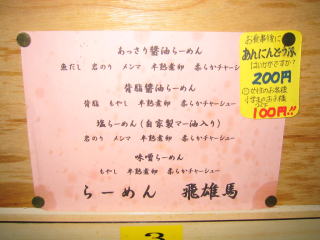 あっさり醤油らーめん
魚だし 岩のり メンマ 半熟煮卵 柔らかチャーシュー
背脂醤油らーめん
背脂 もやし 半熟煮卵 柔らかチャーシュー
塩らーめん(自家製マー油入り)
岩のり メンマ 半熟煮卵 柔らかチャーシュー
味噌らーめん
もやし 半熟煮卵 柔らかチャーシュー
らーめん 飛雄馬
お食事後に
あんにんどうふ
はいかがですか?
200円
小学生のお子様
100円!!
3